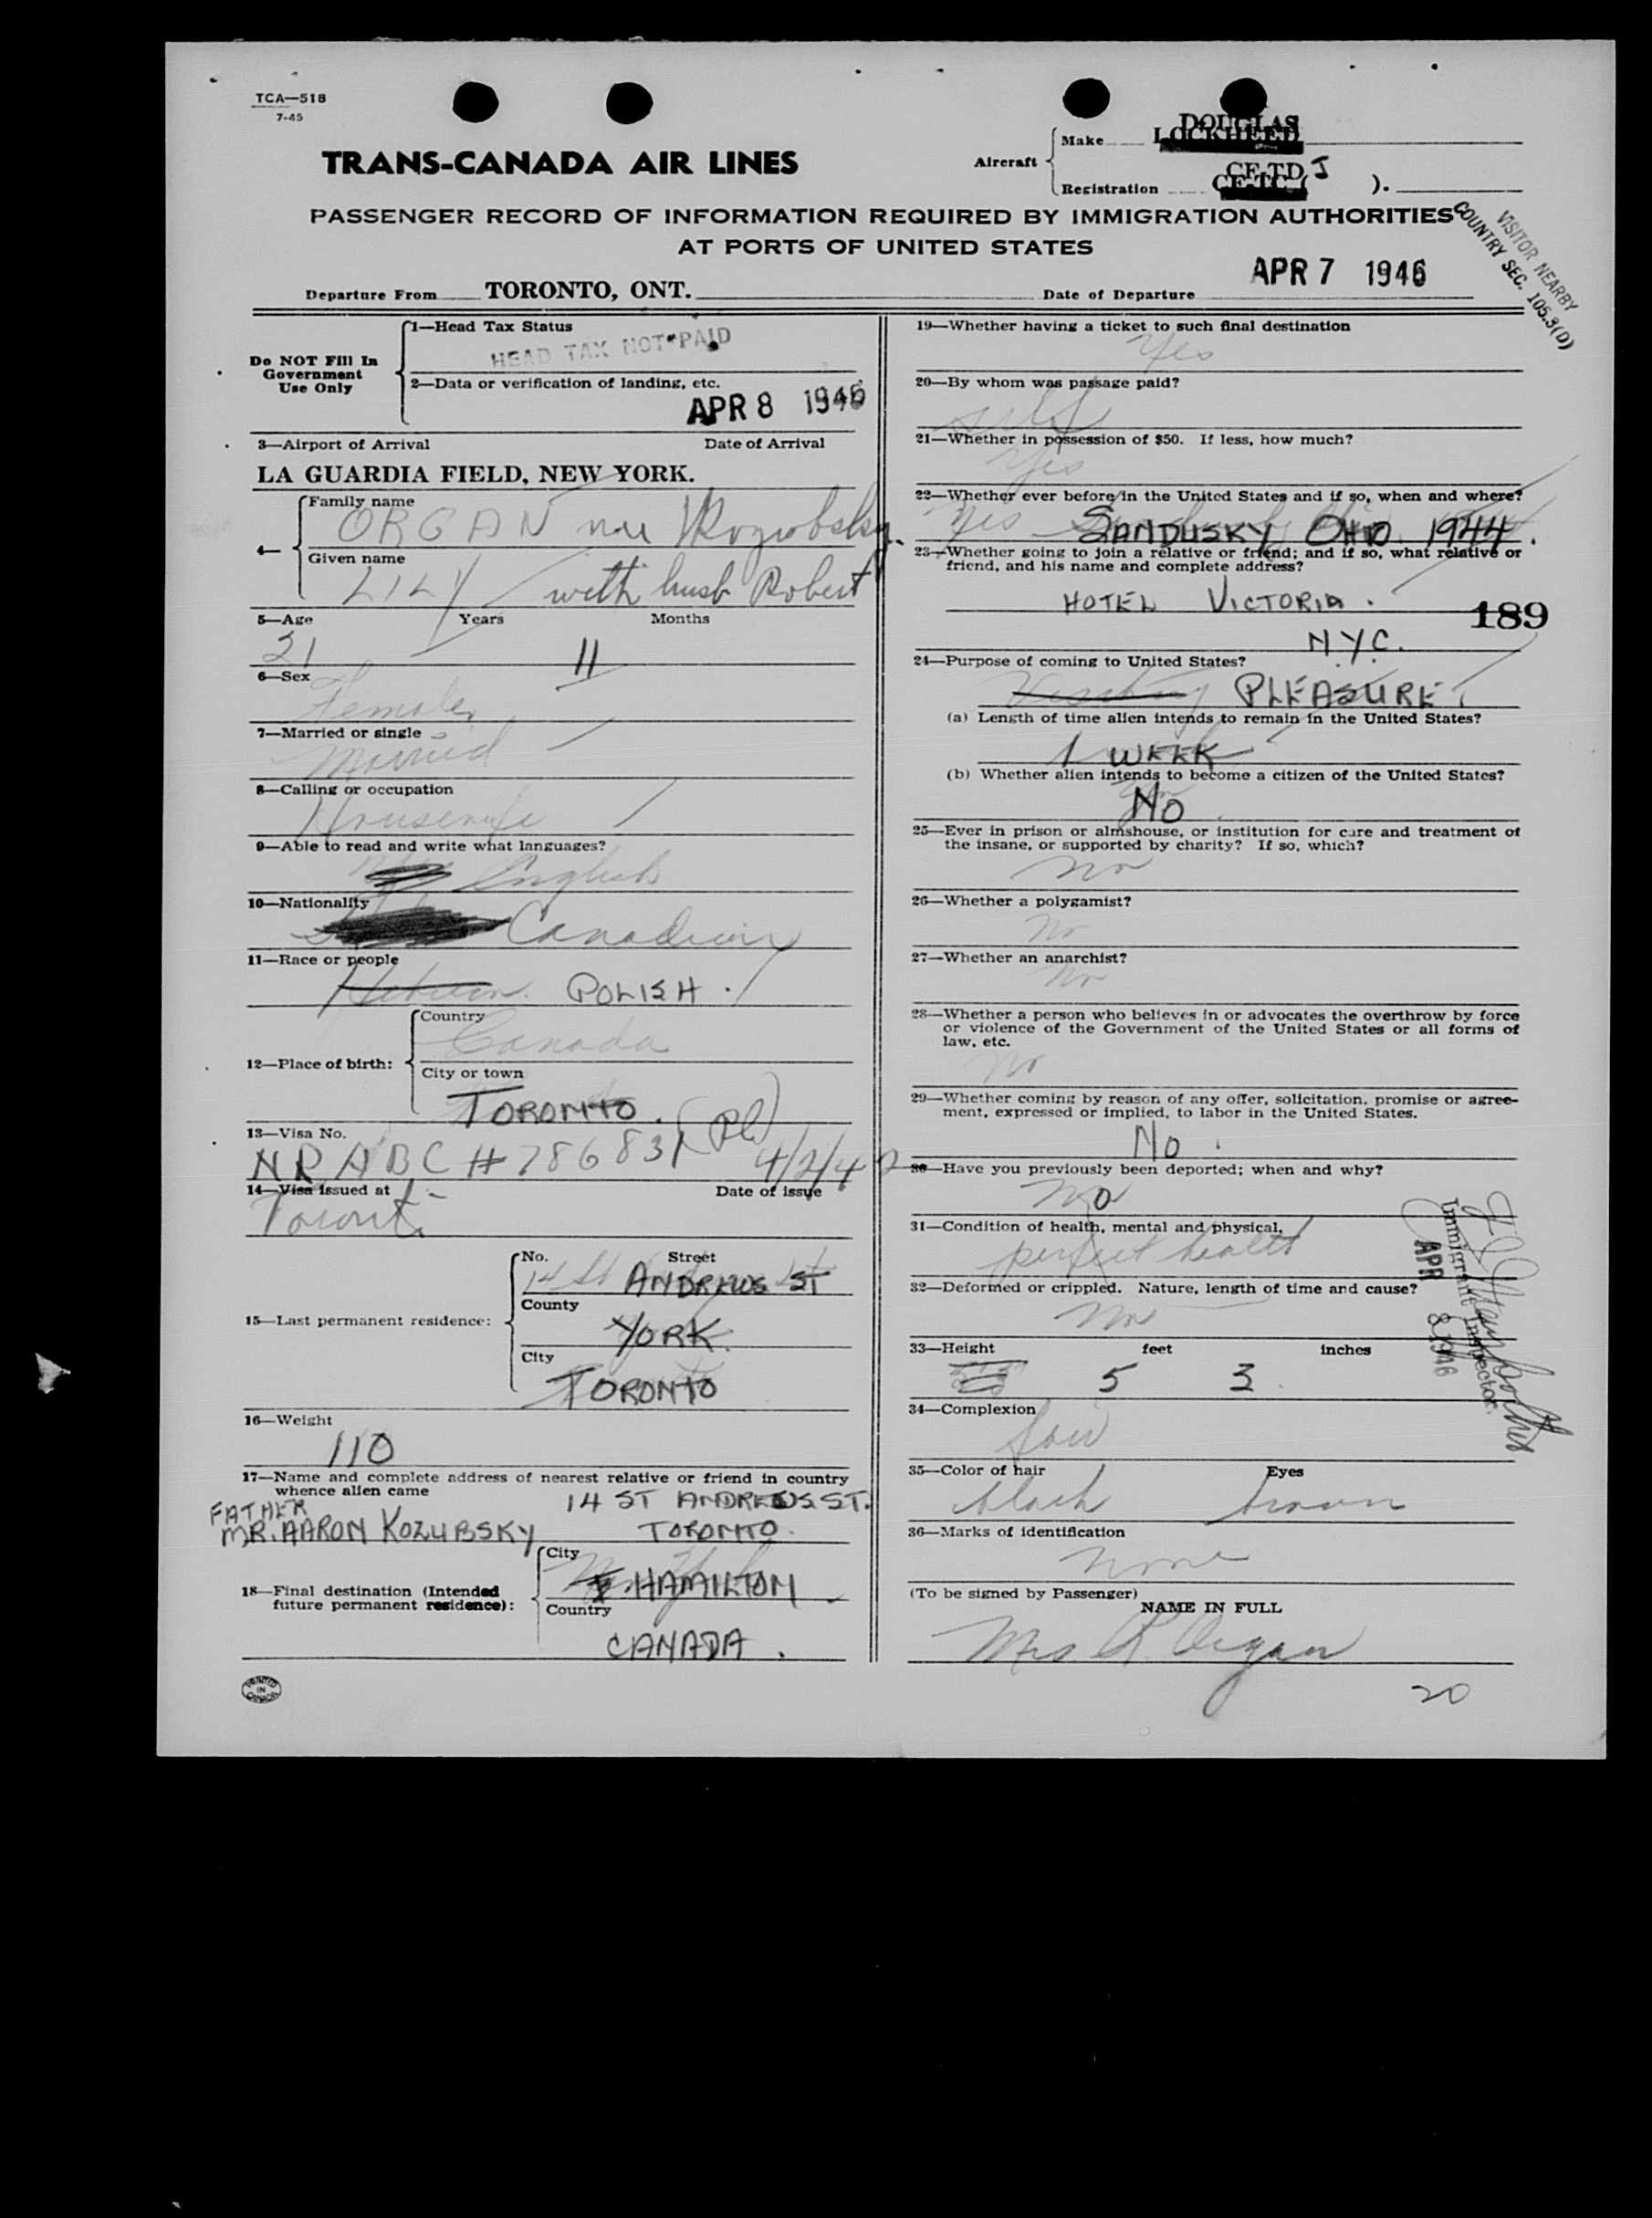 TCA—518
7-45
TRANS-CANADA AIR LINES
Aircraft
Make
DOUGLAS
LOCKHEED
Registration
CF-TD J
).
PASSENGER RECORD OF INFORMATION REQUIRED BY IMMIGRATION AUTHORITIES
AT PORTS OF UNITED STATES
VISITOR NEARBY
COUNTRY SEC. 105.3(D)
Departure From TORONTO, ONT.
Date of Departure APR 7 1946
Do NOT Fill In
Government
Use Only
1—Head Tax Status
HEAD TAX NOT PAID
2—Data or verification of landing, etc.
APR 8 1946
3—Airport of Arrival Date of Arrival
LA GUARDIA FIELD, NEW YORK.
4—
Family name
ORGAN nee
Given name
LILY with husb Robert
5—Age Years Months
21 11
6—Sex
Female
7—Married or single
Married
8—Calling or occupation
Housewife
9—Able to read and write what languages?
English
10—Nationality
Canadian
11—Race or people
Hebrew POLISH.
12—Place of birth:
Country
Canada
City or town
TORONTO. (Pl)
13—Visa No.
NR ABC # 786831 4/2/42
14—Visa issued at Date of issue
Toronto
15—Last permanent residence:
No. Street
14 St ANDREWS ST
County
YORK.
City
TORONTO
16—Weight
110
17—Name and complete address of nearest relative or friend in country
whence alien came
FATHER 14 ST ANDREWS ST.
MR. AARON KOZUBSKY TORONTO.
18—Final destination (Intended
future permanent residence):
City
HAMILTON
Country
CANADA.
PRINTED
IN
CANADA
19—Whether having a ticket to such final destination
Yes
20—By whom was passage paid?
self
21—Whether in possession of $50. If less, how much?
Yes
22—Whether ever before in the United States and if so, when and where?
Yes SANDUSKY OHIO 1944.
23—Whether going to join a relative or friend; and if so, what relative or
friend, and his name and complete address?
HOTEL VICTORIA.
189
N.Y.C.
24—Purpose of coming to United States?
Visiting PLEASURE.
(a) Length of time alien intends to remain in the United States?
1 WEEK
(b) Whether alien intends to become a citizen of the United States?
No
25—Ever in prison or almshouse, or institution for care and treatment of
the insane, or supported by charity? If so, which?
no
26—Whether a polygamist?
no
27—Whether an anarchist?
no
28—Whether a person who believes in or advocates the overthrow by force
or violence of the Government of the United States or all forms of
law, etc.
no
29—Whether coming by reason of any offer, solicitation, promise or agree-
ment, expressed or implied, to labor in the United States.
No.
30—Have you previously been deported; when and why?
no
31—Condition of health, mental and physical,
perfect health
32—Deformed or crippled. Nature, length of time and cause?
no
Immigrant Inspector
APR 8 1946
33—Height feet inches
5 3
34—Complexion
fair
35—Color of hair Eyes
black brown
36—Marks of identification
none
(To be signed by Passenger)
NAME IN FULL
Mrs. R. Organ
20